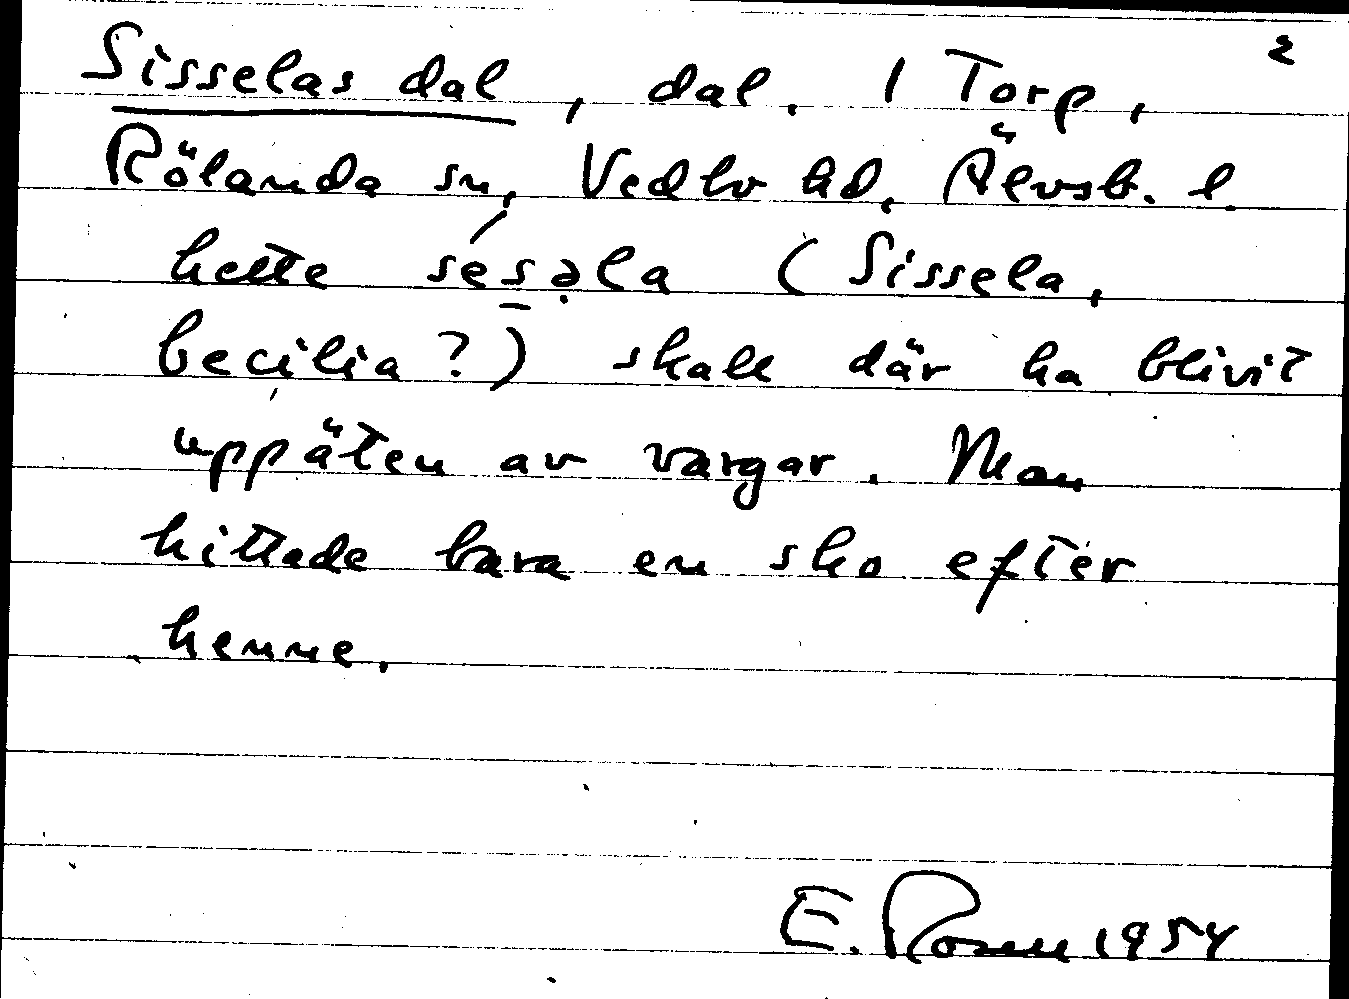 2
Sisselas dal, dal. 1 Torp,
Rölanda sn, Vedbo hd, Älvsb. l.
hette se´s̠ə̣la (Sissela,
Cecilia?) skall där ha blivit
uppäten av vargar. Man
hittade bara en sko efter
henne.
E. Rosell 1954